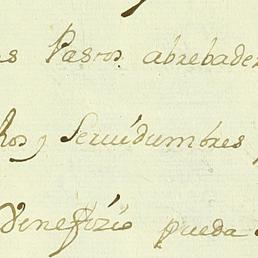 s Pastos. abrebade
hos y Seruidumbres
Venefizio pueda